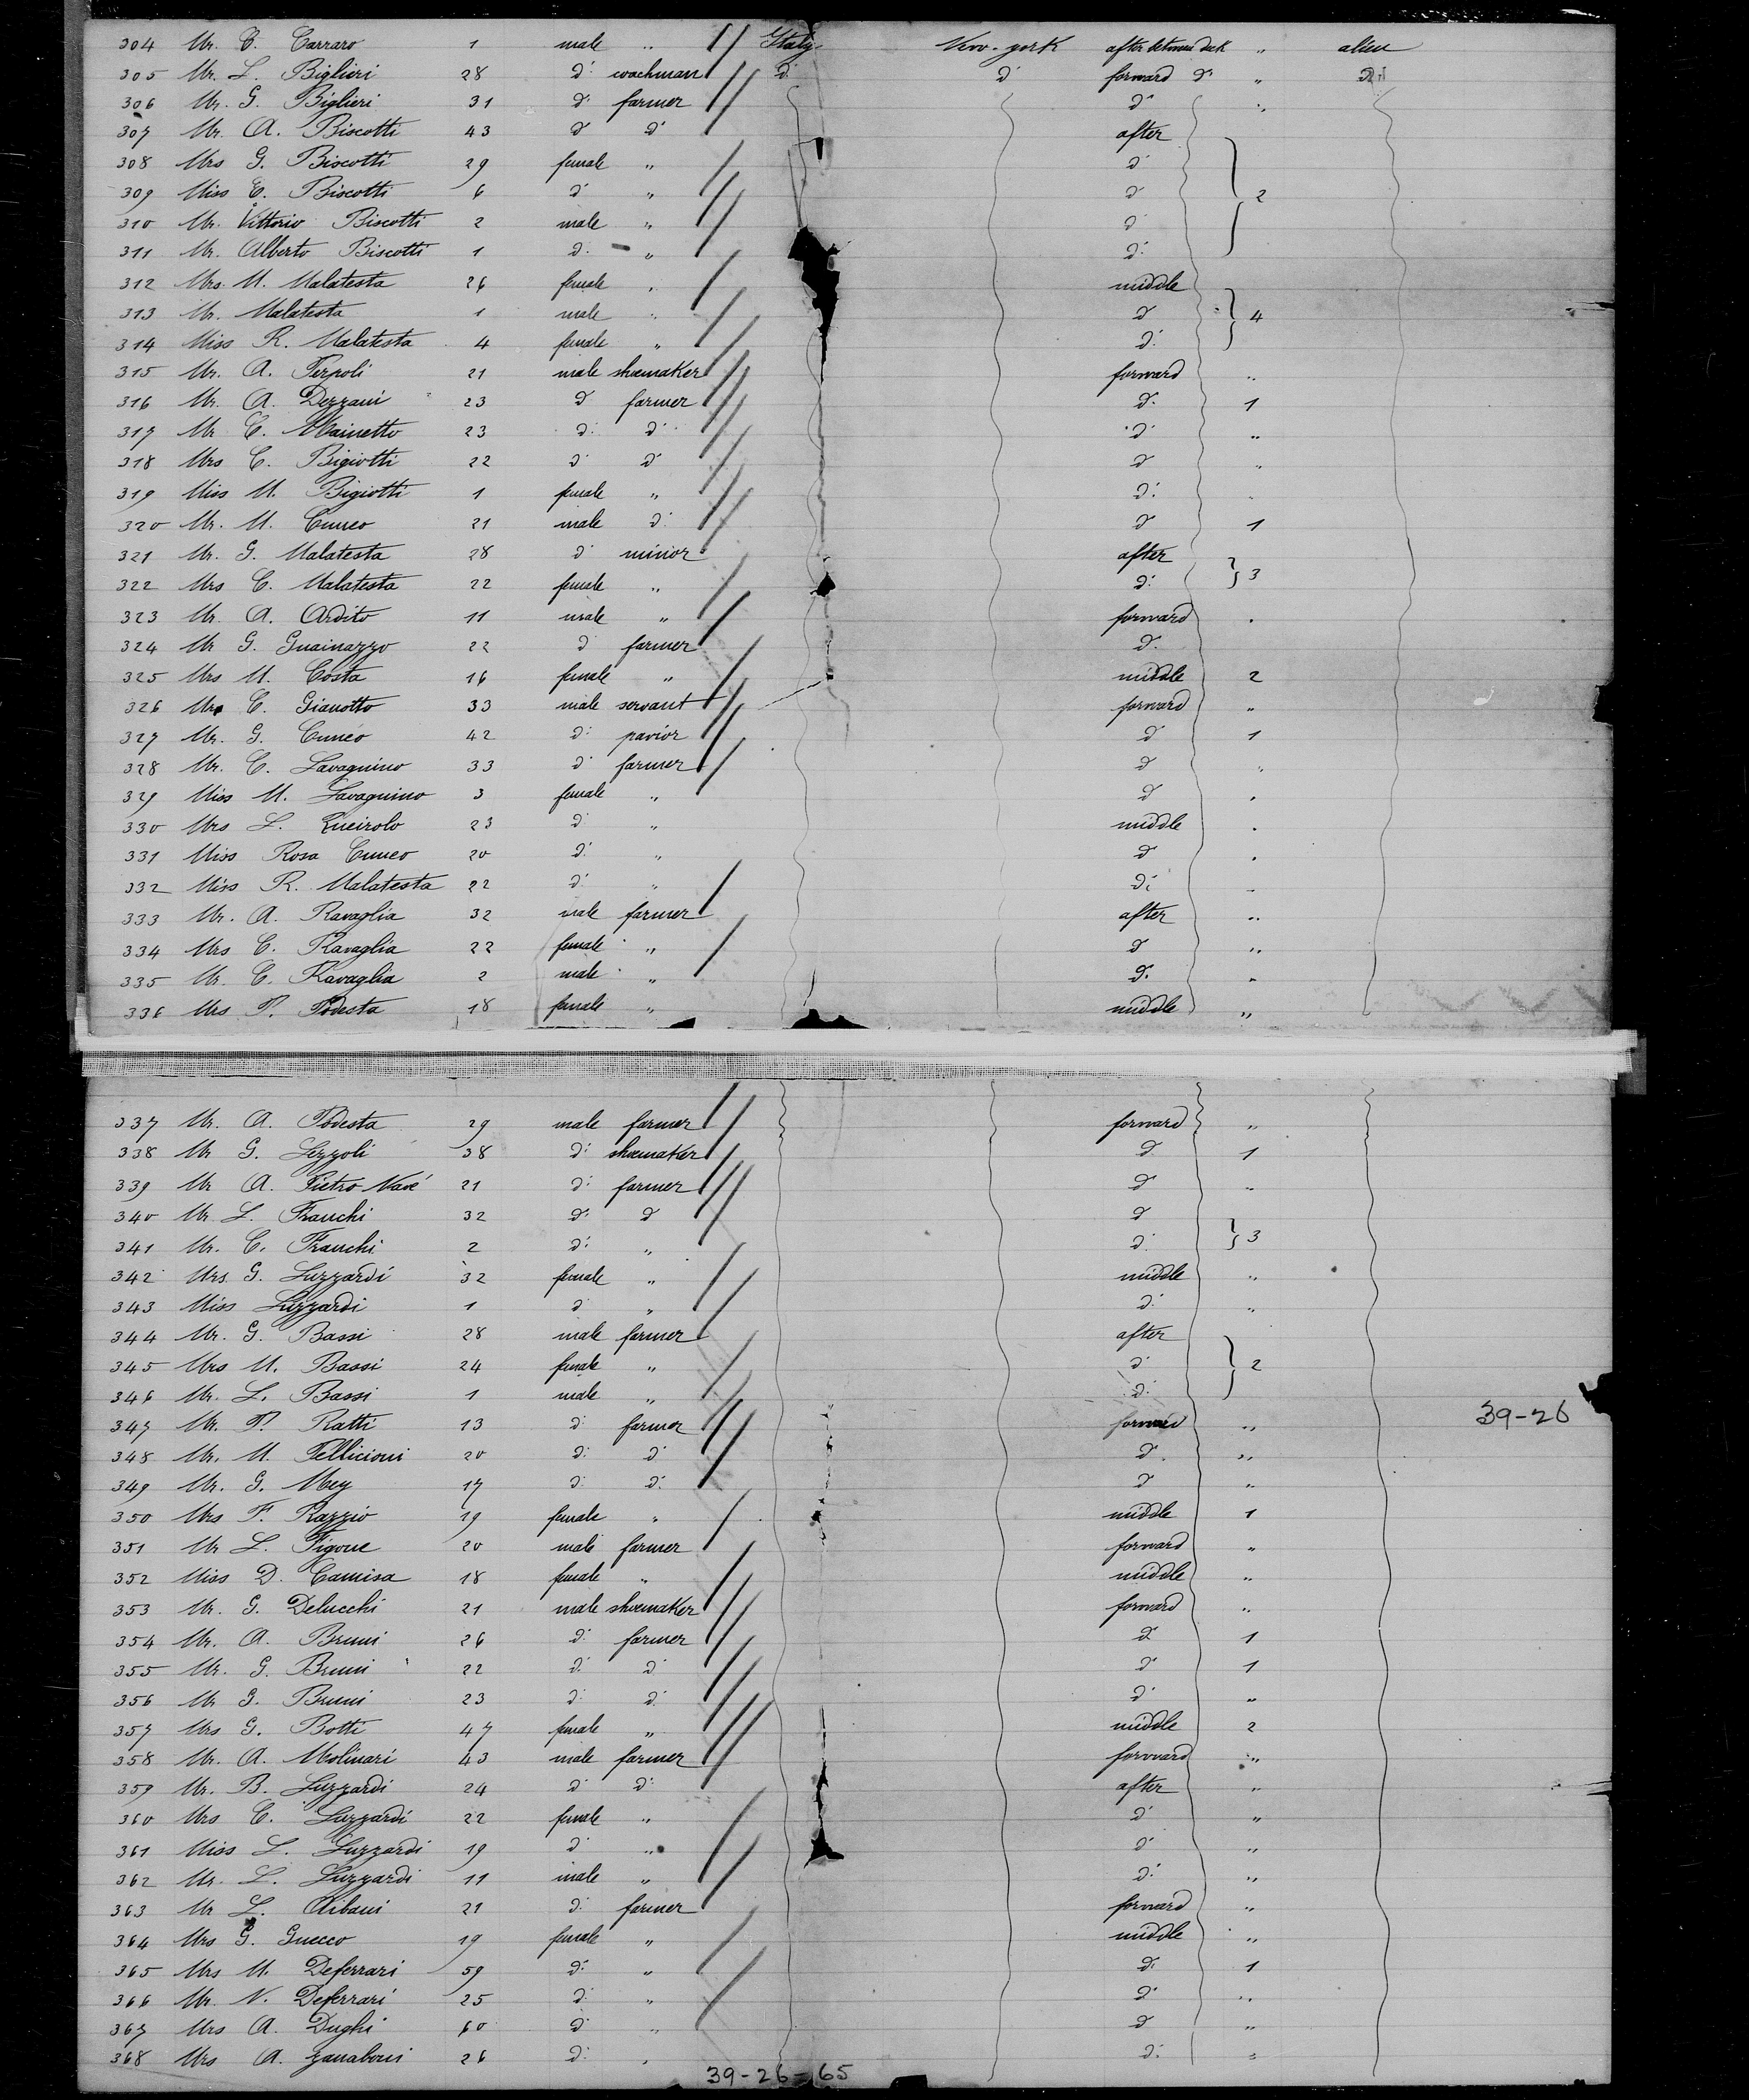 304 Mr. C. Carraro 1 male „ Italy New-york after between deck „ alien
305 Mr. L. Biglieri 28 d: coachman d: d forward d: „ d:
306 Mr. G. Biglieri 31 d: farmer d: „
307 Mr. A. Biscotti 43 d d: after
308 Mrs G. Biscotti 29 female „ d:
309 Miss C. Biscotti 6 d: „ d: 2
310 Mr. Vittorio Biscotti 2 male „ d
311 Mr. Alberto Biscotti 1 d: „ d:
312 Mrs. M. Malatesta 26 female „ middle
313 Mr. Malatesta 1 male „ d 4
314 Miss R. Malatesta 4 female „ d:
315 Mr. A. Perpoli 21 male shoemaker forward „
316 Mr. A. Dezzani 23 d farmer d: 1
317 Mr C. Mainetto 23 d: d: d „
318 Mrs C. Bigiotti 22 d d d „
319 Miss M. Bigiotti 1 female „ d: „
320 Mr. M. Cuneo 21 male d: d 1
321 Mr. G. Malatesta 28 d minior after
322 Mrs C. Malatesta 22 female „ d: 3
323 Mr. A. Ardito 11 male „ forward „
324 Mr G. Guainazzo 22 d farmer d:
325 Mrs M. Costa 16 female „ middle 2
326 Mr C. Gianotto 33 male servant forward „
327 Mr. G. Cuneo 42 d: pavior d 1
328 Mr. C. Lavagnino 33 d farmer d „
329 Miss M. Lavagnino 3 female „ d „
330 Mrs L. Queirolo 23 d „ middle „
331 Miss Rosa Cuneo 20 d: „ d „
332 Miss R. Malatesta 22 d: „ d: „
333 Mr. A. Ravaglia 32 male farmer after „
334 Mrs C. Ravaglia 22 female „ d „
335 Mr. C. Ravaglia 2 male „ d: „
336 Mrs P. Podesta 18 female „ middle „
337 Mr. A. Podesta 29 male farmer forward „
338 Mr G. Lezzoli 38 d: shoemaker d 1
339 Mr A. Pietro-Navé 21 d: farmer d „
340 Mr. L. Franchi 32 d: d d
341 Mr. C. Franchi 2 d: „ d: 3
342 Mrs. G. Luzzardi 32 female „ middle „
343 Miss Luzzardi 1 d „ d: „
344 Mr. G. Bassi 28 male farmer after
345 Mrs M. Bassi 24 female „ d 2
346 Mr. L. Bassi 1 male „ d:
347 Mr. P. Ratti 13 d: farmer forward „ 39-26
348 Mr. M. Pellicioni 20 d: d d „
349 Mr. G. Mey 17 d: d: d „
350 Mrs F. Razzio 19 female „ middle 1
351 Mr L. Figone 20 male farmer forward „
352 Miss D. Camisa 18 female „ middle „
353 Mr. G. Delucchi 21 male shoemaker forward „
354 Mr. A. Bruni 26 d: farmer d 1
355 Mr. G. Bruni 22 d: d d 1
356 Mr G. Bruni 23 d: d: d „
357 Mrs G. Botti 47 female „ middle 2
358 Mr. A. Molinari 43 male farmer forward „
359 Mr. B. Luzzardi 24 d d: after „
360 Mrs C. Luzzardi 22 female „ d „
361 Miss L. Luzzardi 19 d „ d „
362 Mr. L. Luzzardi 11 male „ d: „
363 Mr L. Aibani 21 d: farmer forward „
364 Mrs G. Guecco 19 female „ middle „
365 Mrs M. Deferrari 59 d: „ d: 1
366 Mr. N. Deferrari 25 d: „ d „
367 Mrs A. Dughi 60 d „ d „
368 Mrs A. Zanaboni 26 d: „ d: „
39-26-65